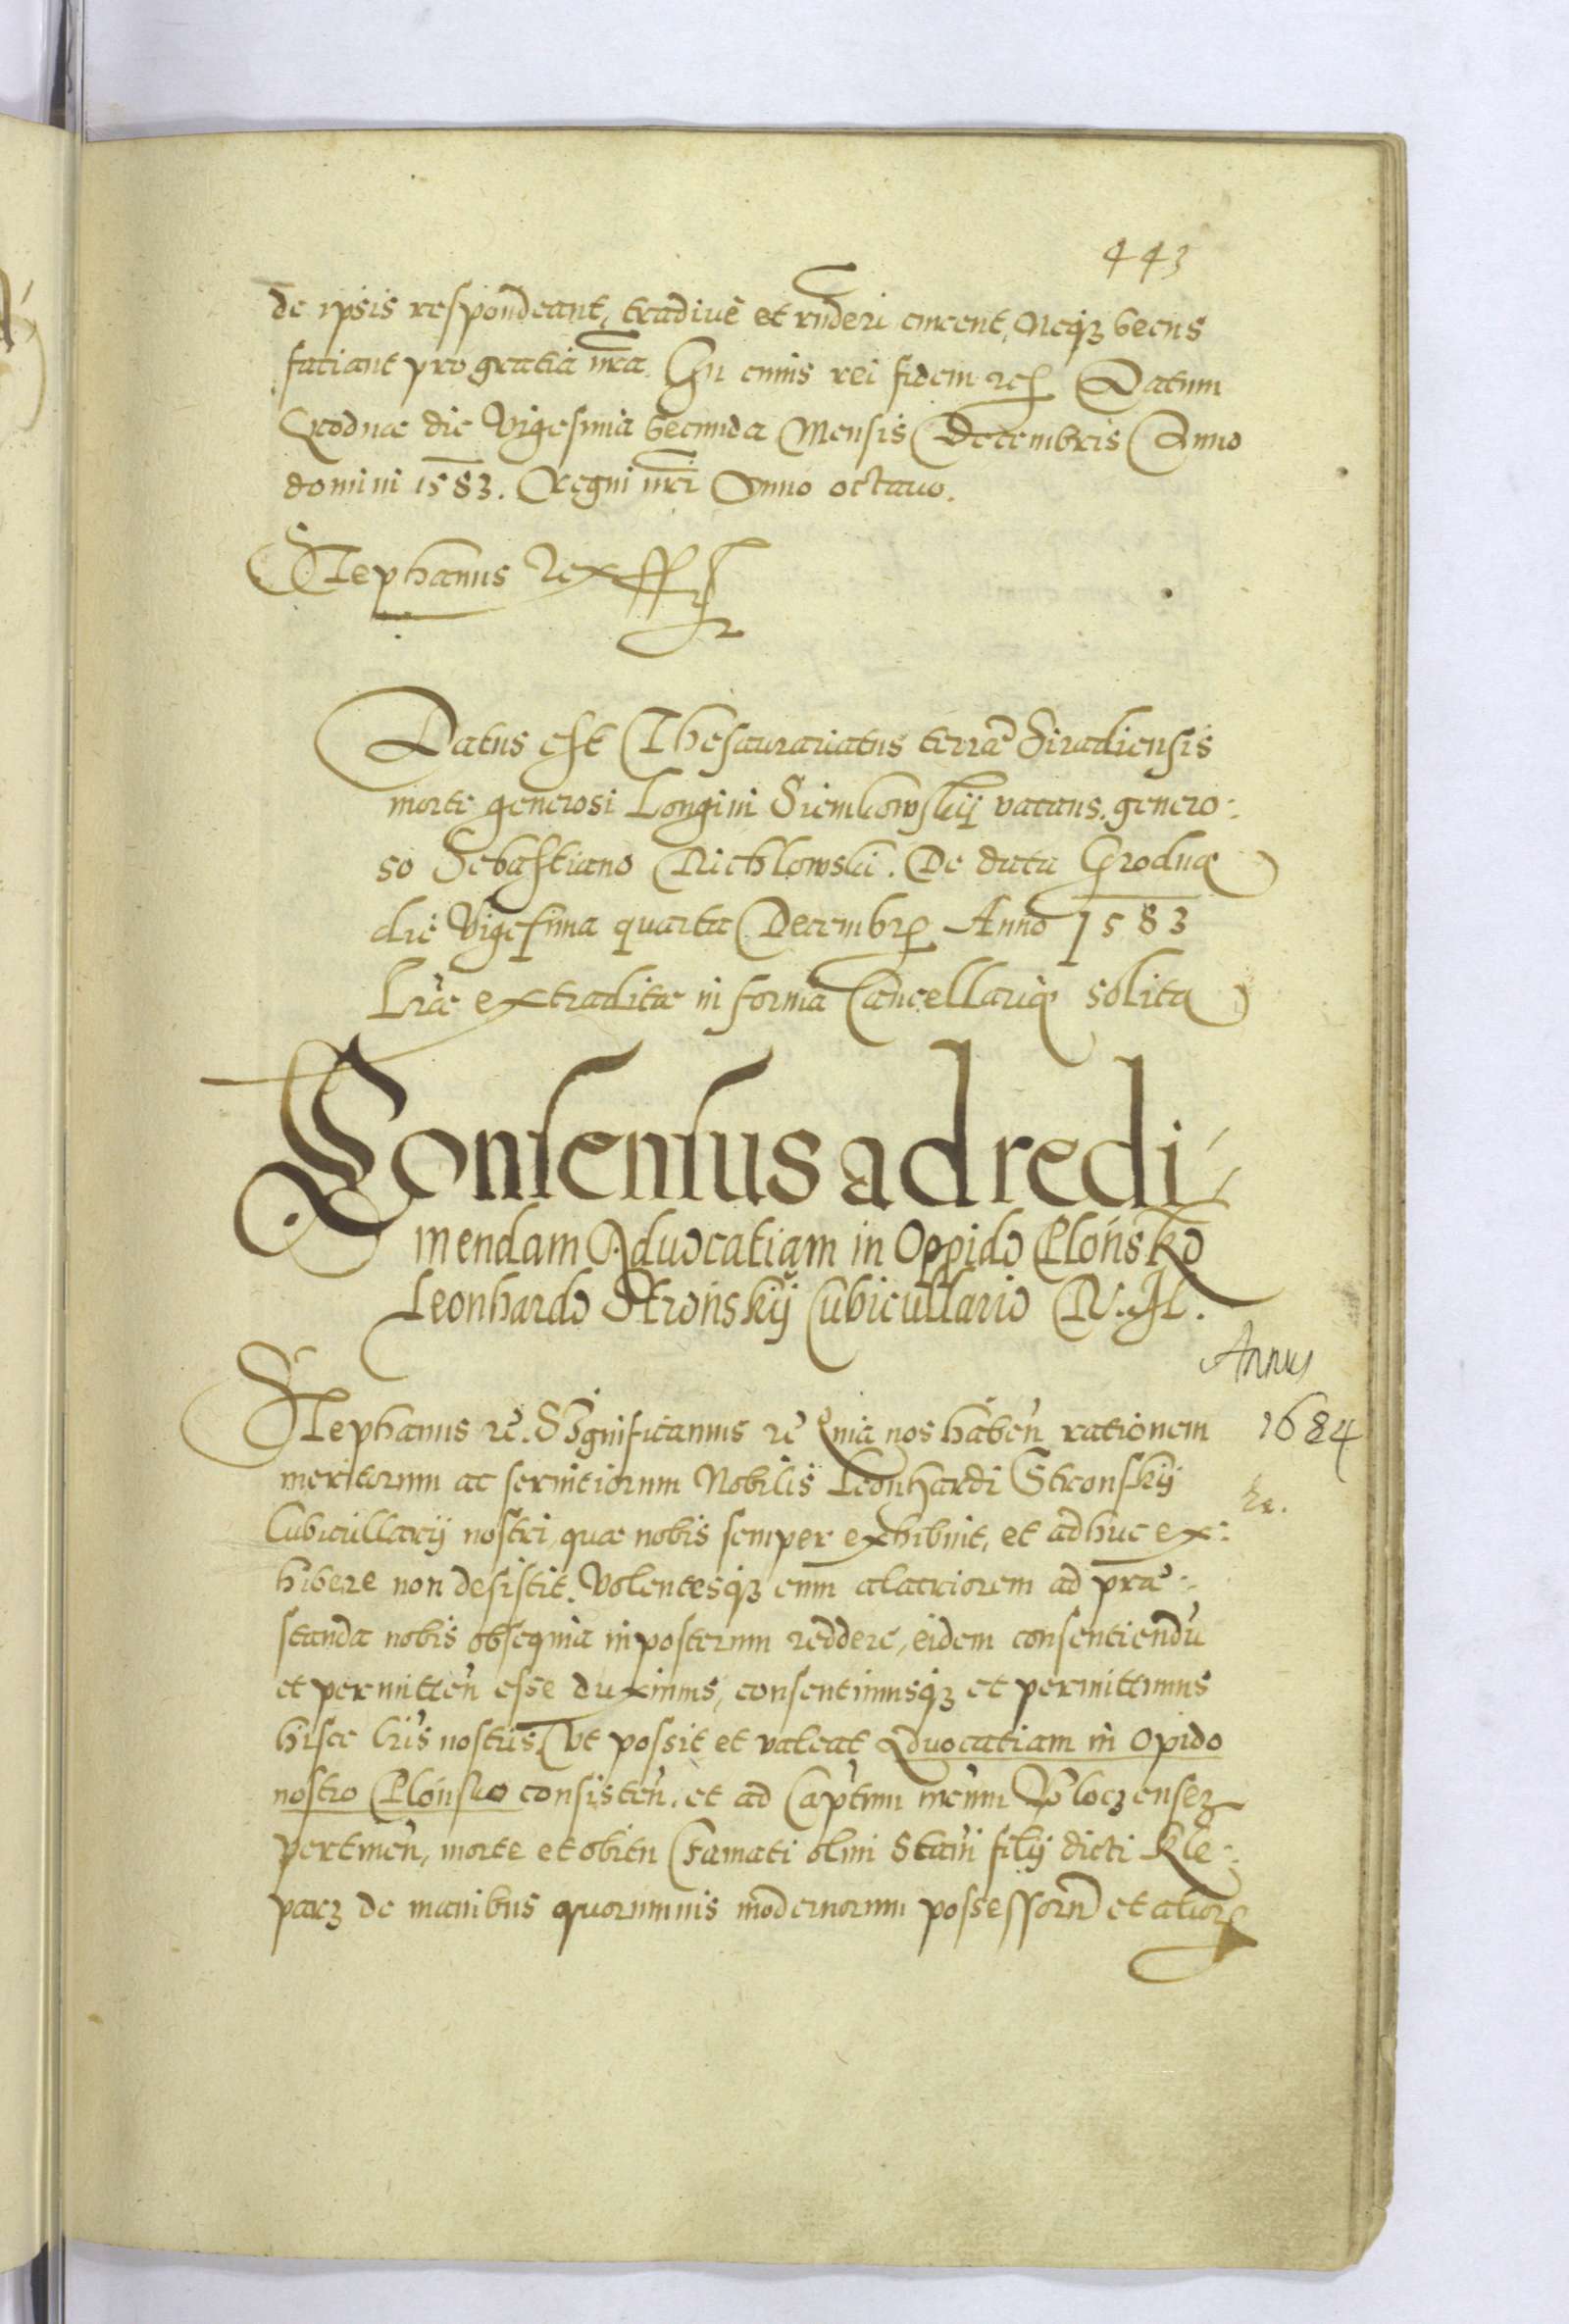 443
de ipsis respondeant, tradivē et rñderi curent, Neqз secus
faciant pro gratia nrã. In cuius rei fidem Datum
Grodnæ die Vigesima secunda Mensis Decembris Anno
domini 1583. Regni nri Anno octavo.
Stephanus Rex ssst
Datus est Thesaurariatus terræ Siradiensis
morte generosi Longini Siemkowskij vacans. genero-
so Sebastiano Nichlowski. De data Grodnæ
die Vigesima quarta Decembr Anno 1583
Lræ extraditæ in forma Cancellariæ solita
Consensus ad redi-
mendam Advocatiam in Oppido Płońsko
Leonhardo Strońskij Cubicullario R. M.
Annus
1684
Stephanus rc. Significamus rc Quia nos habeñ rationem
meritorum ac servitiorum Nobilis Leonhardi Stronskij
Cubicullarij nostri, quæ nobis semper exhibuit, et adhuc ex-
hibere non desistit. Volentesqз eum alacriorem ad præ-
standa nobis obsequia inposterum reddere, eidem consentiendū
et permitteñ esse duximus, consentimusqз et permittimus
hisce lris nostris. Vt possit et valeat Advocatiam in Opido
nostro Płońsko consisteñ. et ad Captum nrum Ploczensem
pertineñ, morte et obitu Famati olim Stani filij dicti Kle-
parz de manibus quorumvis modernorum possessorũ et alior